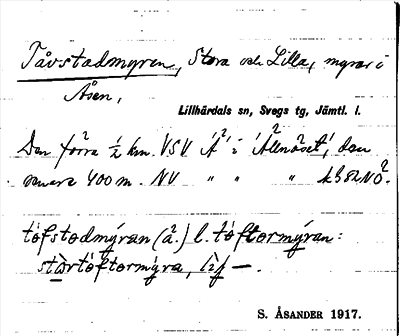 Tåvstadmyren, Stora och Lilla, myrar i
Åsen,
Lillhärdals sn, Svegs tg, Jämtl. l.
Den förra ½ km. VSV Å i Allmöset, den
senare 400 m. NV " " "
tofstadmýran (a.) l. toftormýran:
startoftormýra, —.
S. ÅSANDER 1917.